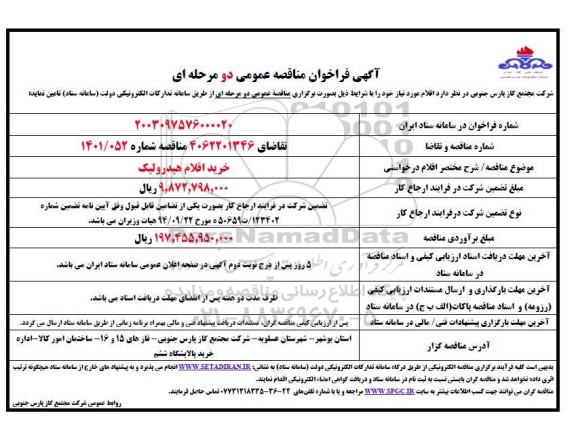 آگهی فراخوان مناقصه عمومی دو مرحله ای
شرکت مجتمع گاز پارس جنوبی در نظر دارد اقلام مورد نیاز خود را با شرایط ذیل بصورت برگزاری مناقصه عمومی دو مرحله ای از طریق سامانه تدارکات الکترونیکی دولت (سامانه ستاد) تامین نماید:
شماره فراخوان در سامانه ستاد ایران
۲۰۰۳۰۹۷۵۷۶۰۰۰۰۲۰
شماره مناقصه و تقاضا
تقاضای ۴۰۶۲۲۰۱۳۴۶ مناقصه شماره ۱۴۰۱/۰۵۲
موضوع مناقصه/ شرح مختصر اقلام درخواستی
خرید اقلام هیدرولیک
مبلغ تضمین شرکت در فرایند ارجاع کار
۹،۸۷۲،۷۹۸،۰۰۰ ریال
نوع تضمین شرکت درفرایند ارجاع کار
تضمین شرکت در فرایند ارجاع کار بصورت یکی از تضامین قابل قبول وفق آیین نامه تضمین شماره
۱۲۳۴۰۲/ت۵۰۶۵۹ه مورخ ۹۴/۰۹/۲۲ هیات وزیران می باشد.
مبلغ برآوردی مناقصه
۱۹۷،۴۵۵،۹۵۰،۰۰۰ ریال
آخرین مهلت دریافت اسناد ارزیابی کیفی و اسناد مناقصه
در سامانه ستاد
۵ روز پس از درج نوبت دوم آگهی در صفحه اعلان عمومی سامانه ستاد ایران می باشد.
آخرین مهلت بارگذاری و ارسال مستندات ارزیابی کیفی
(رزومه) و اسناد مناقصه پاکات(الف ب ج) در سامانه ستاد
ظرف مدت دو هفته پس از انقضای مهلت دریافت اسناد می باشد.
آخرین مهلت بارگزاری پیشنهادات فنی/ مالی در سامانه ستاد
پس از ارزیابی کیفی مناقصه گران، مستندات دریافت پیشنهاد فنی و مالی بهمراه برنامه زمانی از طریق سامانه ستاد ارسال می گردد.
آدرس مناقصه گزار
استان بوشهر- شهرستان عسلویه- شرکت مجتمع گاز پارس جنوبی- فاز های ۱۵ و ۱۶- ساختمان امور کالا-اداره
خرید پالایشگاه ششم
بدیهی است کلیه فرآیند برگزاری مناقصه الکترونیکی از طریق درگاه سامانه تدارکات الکترونیکی دولت (سامانه ستاد) به نشانی: WWW.SETADIRAN.IR انجام می پذیرد و به پیشنهاد های خارج از سامانه ستاد هیچگونه ترتیب
اثری داده نخواهد شد و مناقصه گران بایستی نسبت به ثبت نام در سامانه ستاد و دریافت گواهی امضاء الکترونیکی اقدام نمایند.
مناقصه گران می توانند جهت کسب اطلاعات بیشتر به سایت WWW.SPGC.IR مراجعه و یا با شماره تلفن های ۰۷۷۳۱۳۱۸۳۳۵-۳۶-۲۳ تماس حاصل فرمایند.
روابط عمومی شرکت مجتمع گاز پارس جنوبی
ParsNamadData
۰۲۱-۸۸۳۴۹۶۷۰-۵